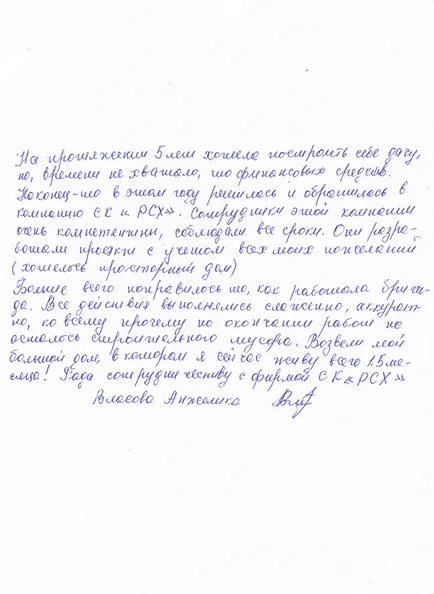 На протяжении 5 лет хотела построить себе дачу,
но, времени не хватало, то финансовых средств.
Наконец-то в этом году решилась и обратилась в
компанию СК «РСХ». Сотрудники этой компании
очень компетентны, соблюдали все сроки. Они разра-
ботали проекты с учетом всех моих пожеланий
(хотелось просторный дом)
Больше всего понравилось то, как работала брига-
да. Все действия выполнялись слаженно, аккурат-
но, ко всему прочему по окончании работ не
осталось строительного мусора. Возвели мой
большой дом, в котором я сейчас живу всего 1.5 ме-
сяца! Рада сотрудничеству с фирмой СК «РСХ»
Власова Анжелика